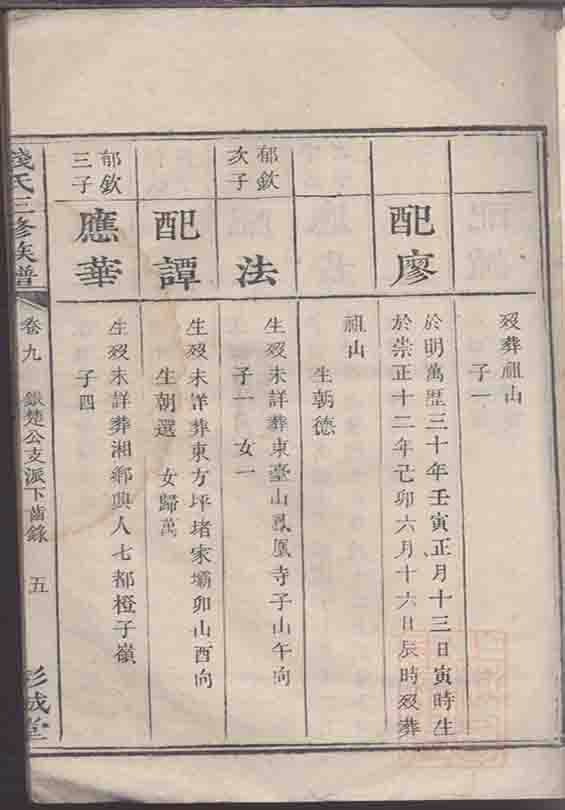 歿葬祖山
子一
配廖
於明萬歷三十年壬寅正月十三日寅時生
於崇正十二年己卯六月十六日辰時歿葬
祖山
生朝德
郁欽
次子
法
生歿未詳葬東臺山鳳凰寺子山午向
子一 女一
配譚
生歿未詳葬東方坪堵家壩卯山酉向
生朝選 女歸萬
郁欽
三子
應華
生歿未詳葬湘鄉興人七都橙子嶺
子四
錢氏三修族譜
卷九
銀楚公支派下齒錄
五
彭城堂